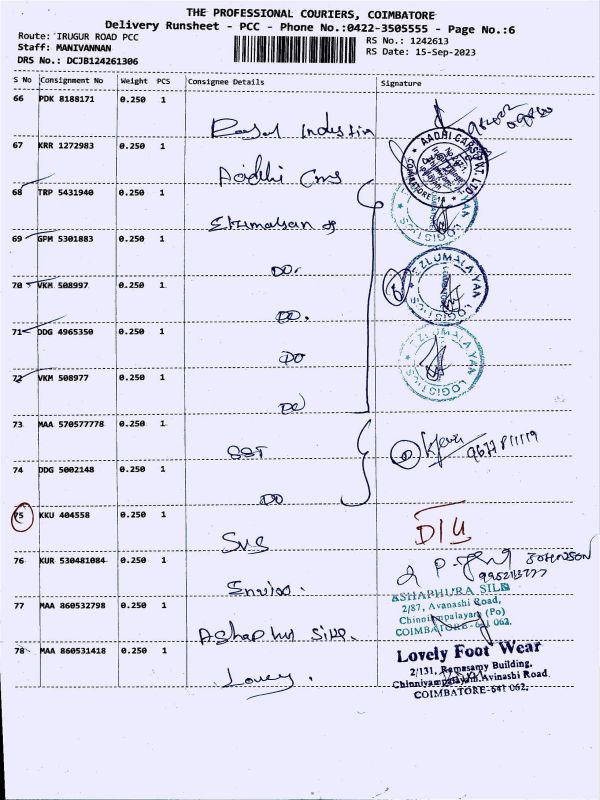 THE PROFESSIONAL COURIERS, COIMBATORE
Delivery Runsheet - PCC - Phone No.:0422-3505555 - Page No.:6
Route: IRUGUR ROAD PCC
RS No.: 1242613
Staff: MANIVANNAN
RS Date: 15-Sep-2023
DRS No.: DCJB124261306
S No Consignment No Weight PCS Consignee Details Signature
66 PDK 8188171 0.250 1
67 KRR 1272983 0.250 1 Aadhi Cars
AADHI CARS PVT. LTD.
COIMBATORE
68 TRP 5431940 0.250 1
69 GPM 5301883 0.250 1 DO.
70 VKM 508997 0.250 1 DO.
EZLUMALAYAN LOGISTICS
COIMBATORE
71 DDG 4965350 0.250 1 DO
EZLUMALAYAN LOGISTICS
72 VKM 508977 0.250 1 DO
73 MAA 570577778 0.250 1
74 DDG 5002148 0.250 1 DO
75 KKU 404558 0.250 1 SMS
D/L
76 KUR 530481084 0.250 1 Enviro.
JOHNSON
77 MAA 860532798 0.250 1 Ashaphura Silk.
ASHAPHURA SILK
2/87, Avanashi Road,
Chinniyampalayam (Po)
COIMBATORE-641 062.
78 MAA 860531418 0.250 1 Lovely.
Lovely Foot Wear
2/131, Ramasamy Building,
Chinniyampalayam, Avinashi Road.
COIMBATORE-641 062.